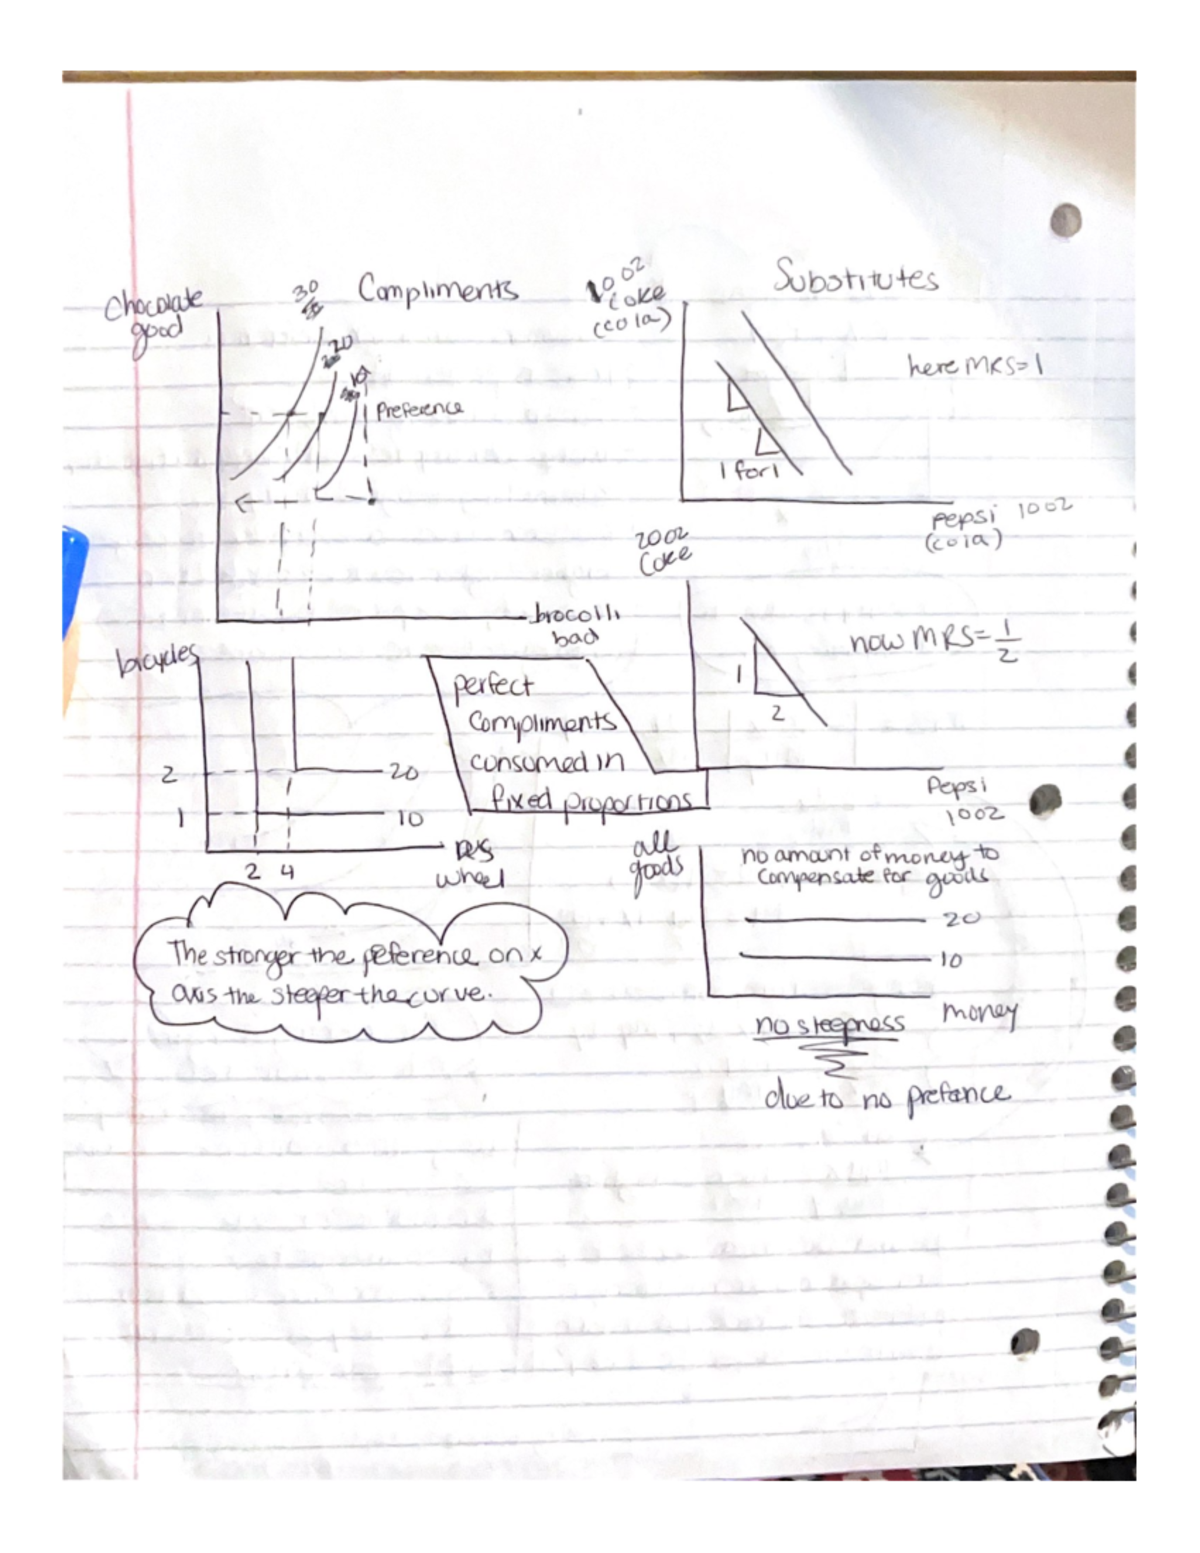 Compliments
Chocolate
good
30
20
10
Preference
brocolli
bad
Substitutes
10oz
Coke
(cola)
here MRS=1
1 for 1
Pepsi 10oz
(cola)
20oz
Coke
now MRS= 1/2
1
2
Pepsi
10oz
bicycles
2
1
20
10
2 4
wheel
perfect
Compliments
consumed in
fixed proportions
all
goods
no amount of money to
compensate for goods
20
10
money
no steepness
due to no prefance
The stronger the peference on x
axis the steeper the curve.